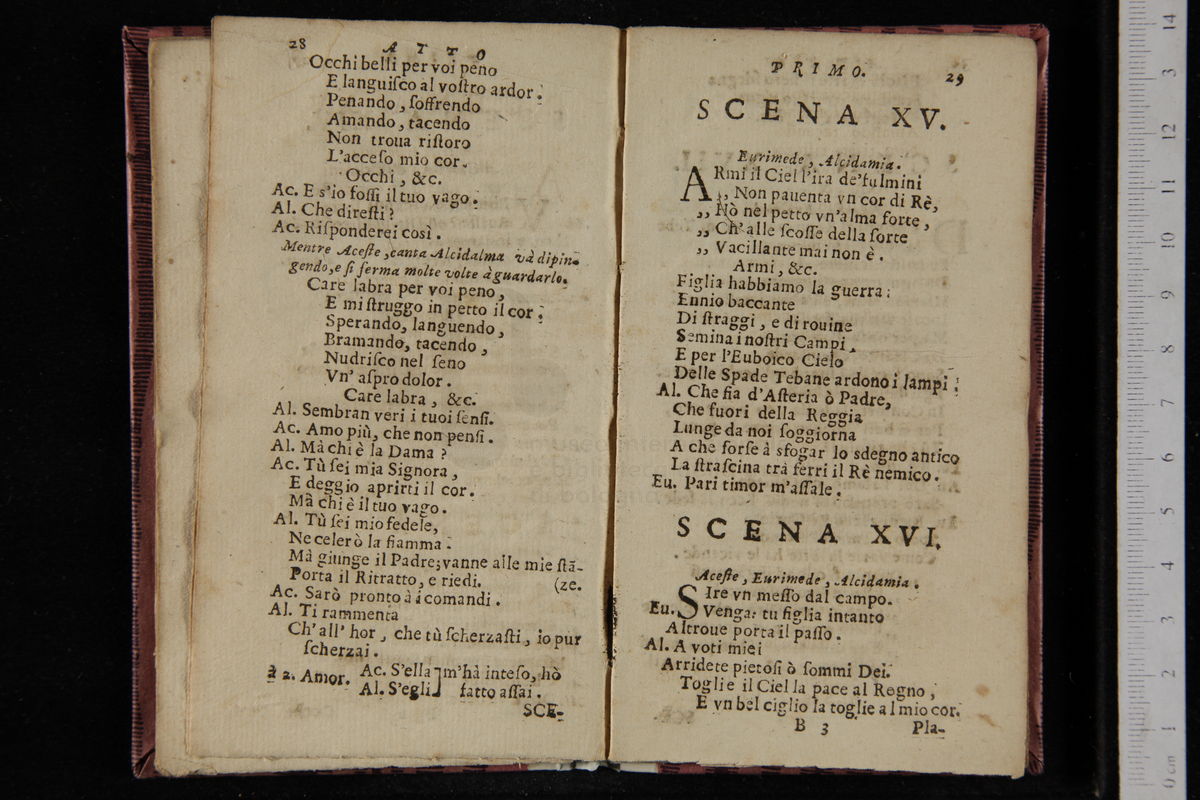 28 ATTO
Occhi belli per voi peno
E languiſco al voſtro ardor.
Penando, ſoffrendo
Amando, tacendo
Non troua riſtoro
L'acceſo mio cor.
Occhi, &c.
Ac. E s'io foſſi il tuo vago.
Al. Che direſti?
Ac. Riſponderei così.
Mentre Aceſte, canta Alcidalma và dipin-
gendo, e ſi ferma molte volte à guardarlo.
Care labra per voi peno,
E mi ſtruggo in petto il cor;
Sperando, languendo,
Bramando, tacendo,
Nudriſco nel ſeno
Vn' aſpro dolor.
Care labra, &c.
Al. Sembran veri i tuoi ſenſi.
Ac. Amo più, che non penſi.
Al. Mà chi è la Dama?
Ac. Tù ſei mia Signora,
E deggio aprirti il cor.
Mà chi è il tuo vago.
Al. Tù ſei mio fedele,
Ne celerò la fiamma.
Mà giunge il Padre; vanne alle mie ſtã-
Porta il Ritratto, e riedi. (ze.
Ac. Sarò pronto à i comandi.
Al. Ti rammenta
Ch'all' hor, che tù ſcherzaſti, io pur
ſcherzai.
à 2. Amor. Ac. S'ella] m'hà inteſo, hò
Al. S'egli] fatto aſſai.
SCE-
PRIMO. 29
SCENA XV.
Eurimede, Alcidamia.
ARmi il Ciel l'ira de'fulmini
,, Non pauenta vn cor di Rè,
,, Nò nel petto vn'alma forte,
,, Ch'alle ſcoſſe della ſorte
,, Vacillante mai non è.
Armi, &c.
Figlia habbiamo la guerra;
Ennio baccante
Di ſtraggi, e di rouine
Semina i noſtri Campi,
E per l'Euboico Cielo
Delle Spade Tebane ardono i lampi;
Al. Che fia d'Aſteria ò Padre,
Che fuori della Reggia
Lunge da noi ſoggiorna
A che forſe à sfogar lo sdegno antico
La ſtraſcina trà ferri il Rè nemico.
Eu. Pari timor m'aſſale.
SCENA XVI.
Aceſte, Eurimede, Alcidamia.
SIre vn meſſo dal campo.
Eu. Venga: tu figlia intanto
Altroue porta il paſſo.
Al. A voti miei
Arridete pietoſi ò ſommi Dei.
Toglie il Ciel la pace al Regno,
E vn bel ciglio la toglie al mio cor.
B 3 Pla-
14
13
12
11
10
9
8
7
6
5
4
3
2
1
0 cm